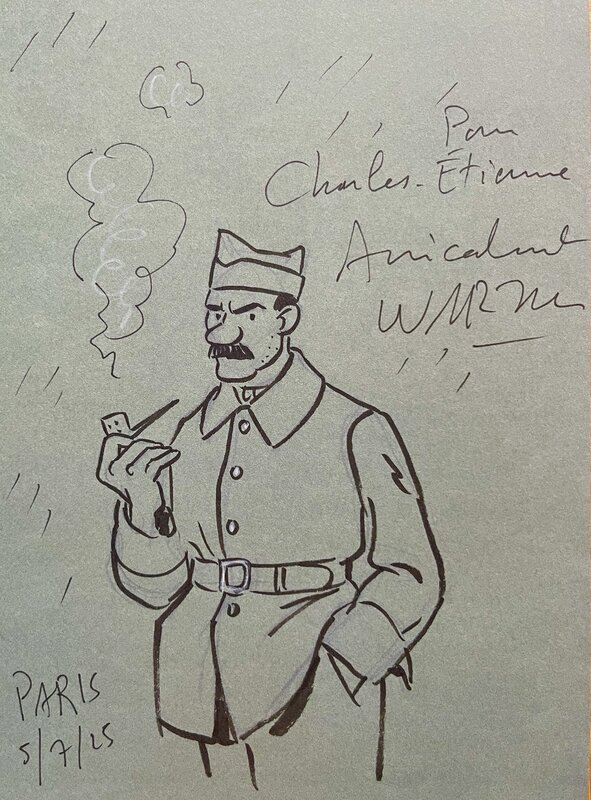 Pour
Charles-Étienne
Amicalement
PARIS
5/7/25